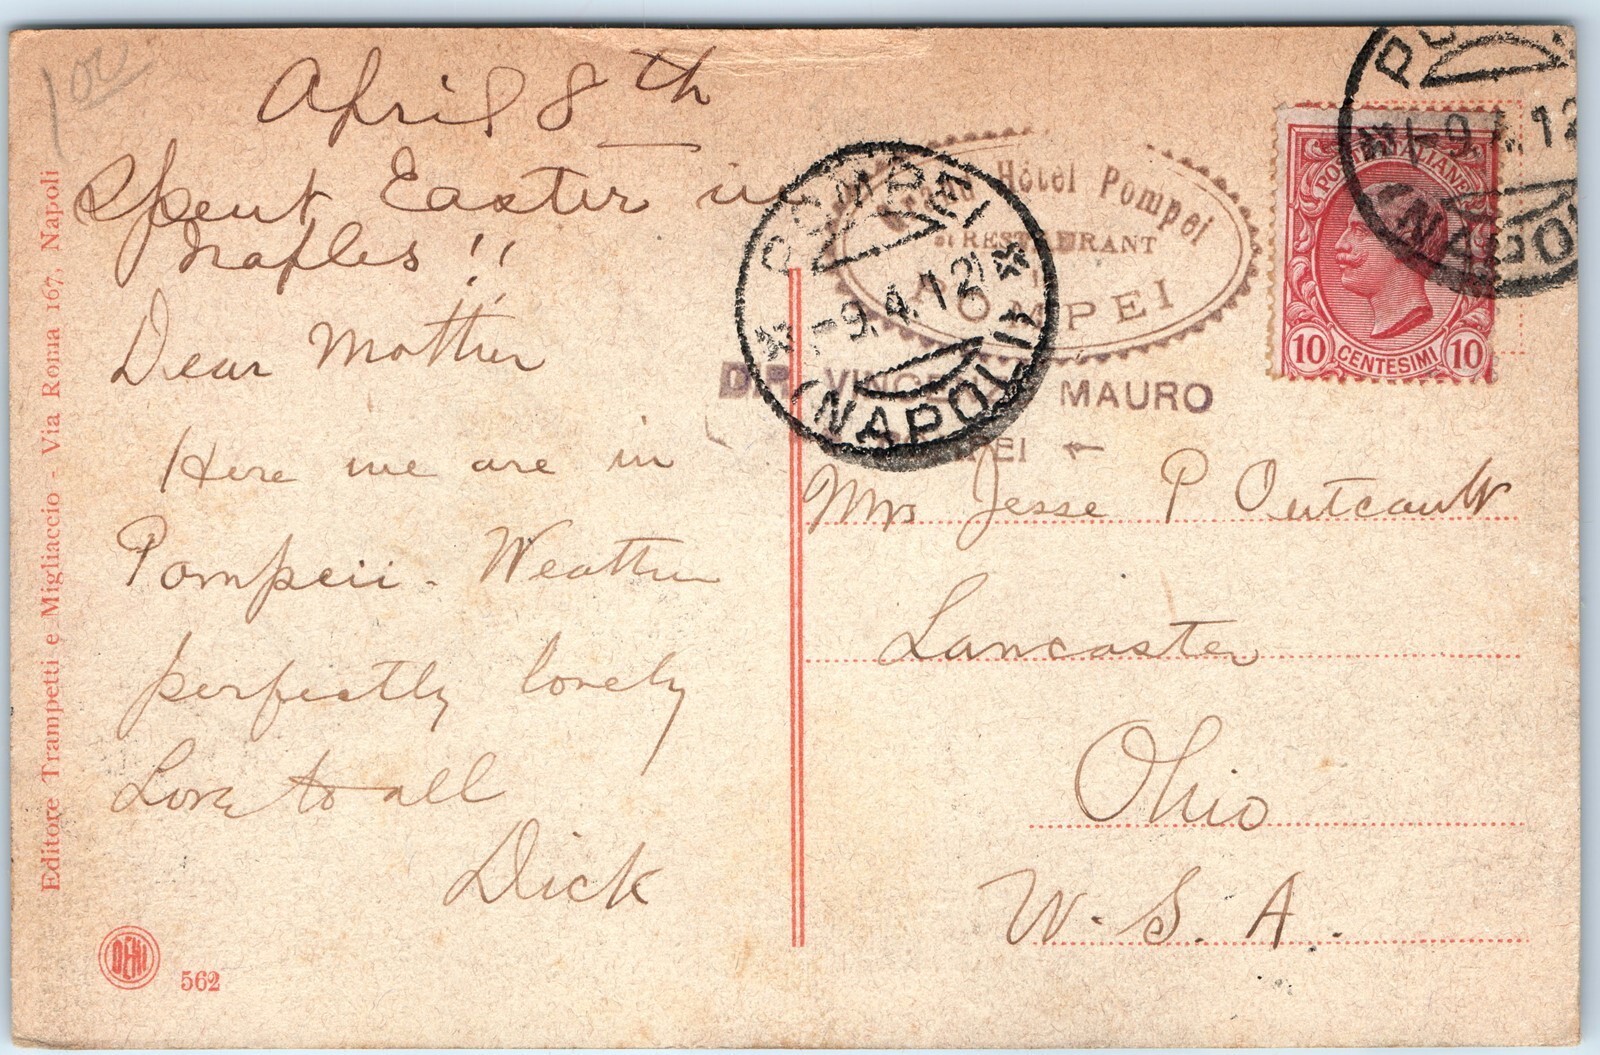 100
April 8th
Spent Easter in
Naples !!
Dear Mother
Here we are in
Pompeii - Weather
perfectly lovely
Love to all
Dick
Editore Trampetti e Migliaccio - Via Roma 167, Napoli
DENI
562
POMPEI
-9.4.12
(NAPOLI)
Grand Hôtel Pompei
et RESTAURANT
POMPEI
DR. MAURO
POMPEI
POSTE ITALIANE
10 CENTESIMI 10
PO
-9.4.12
(NAPOLI
Mrs Jesse P Outcault
Lancaster
Ohio
U. S. A.